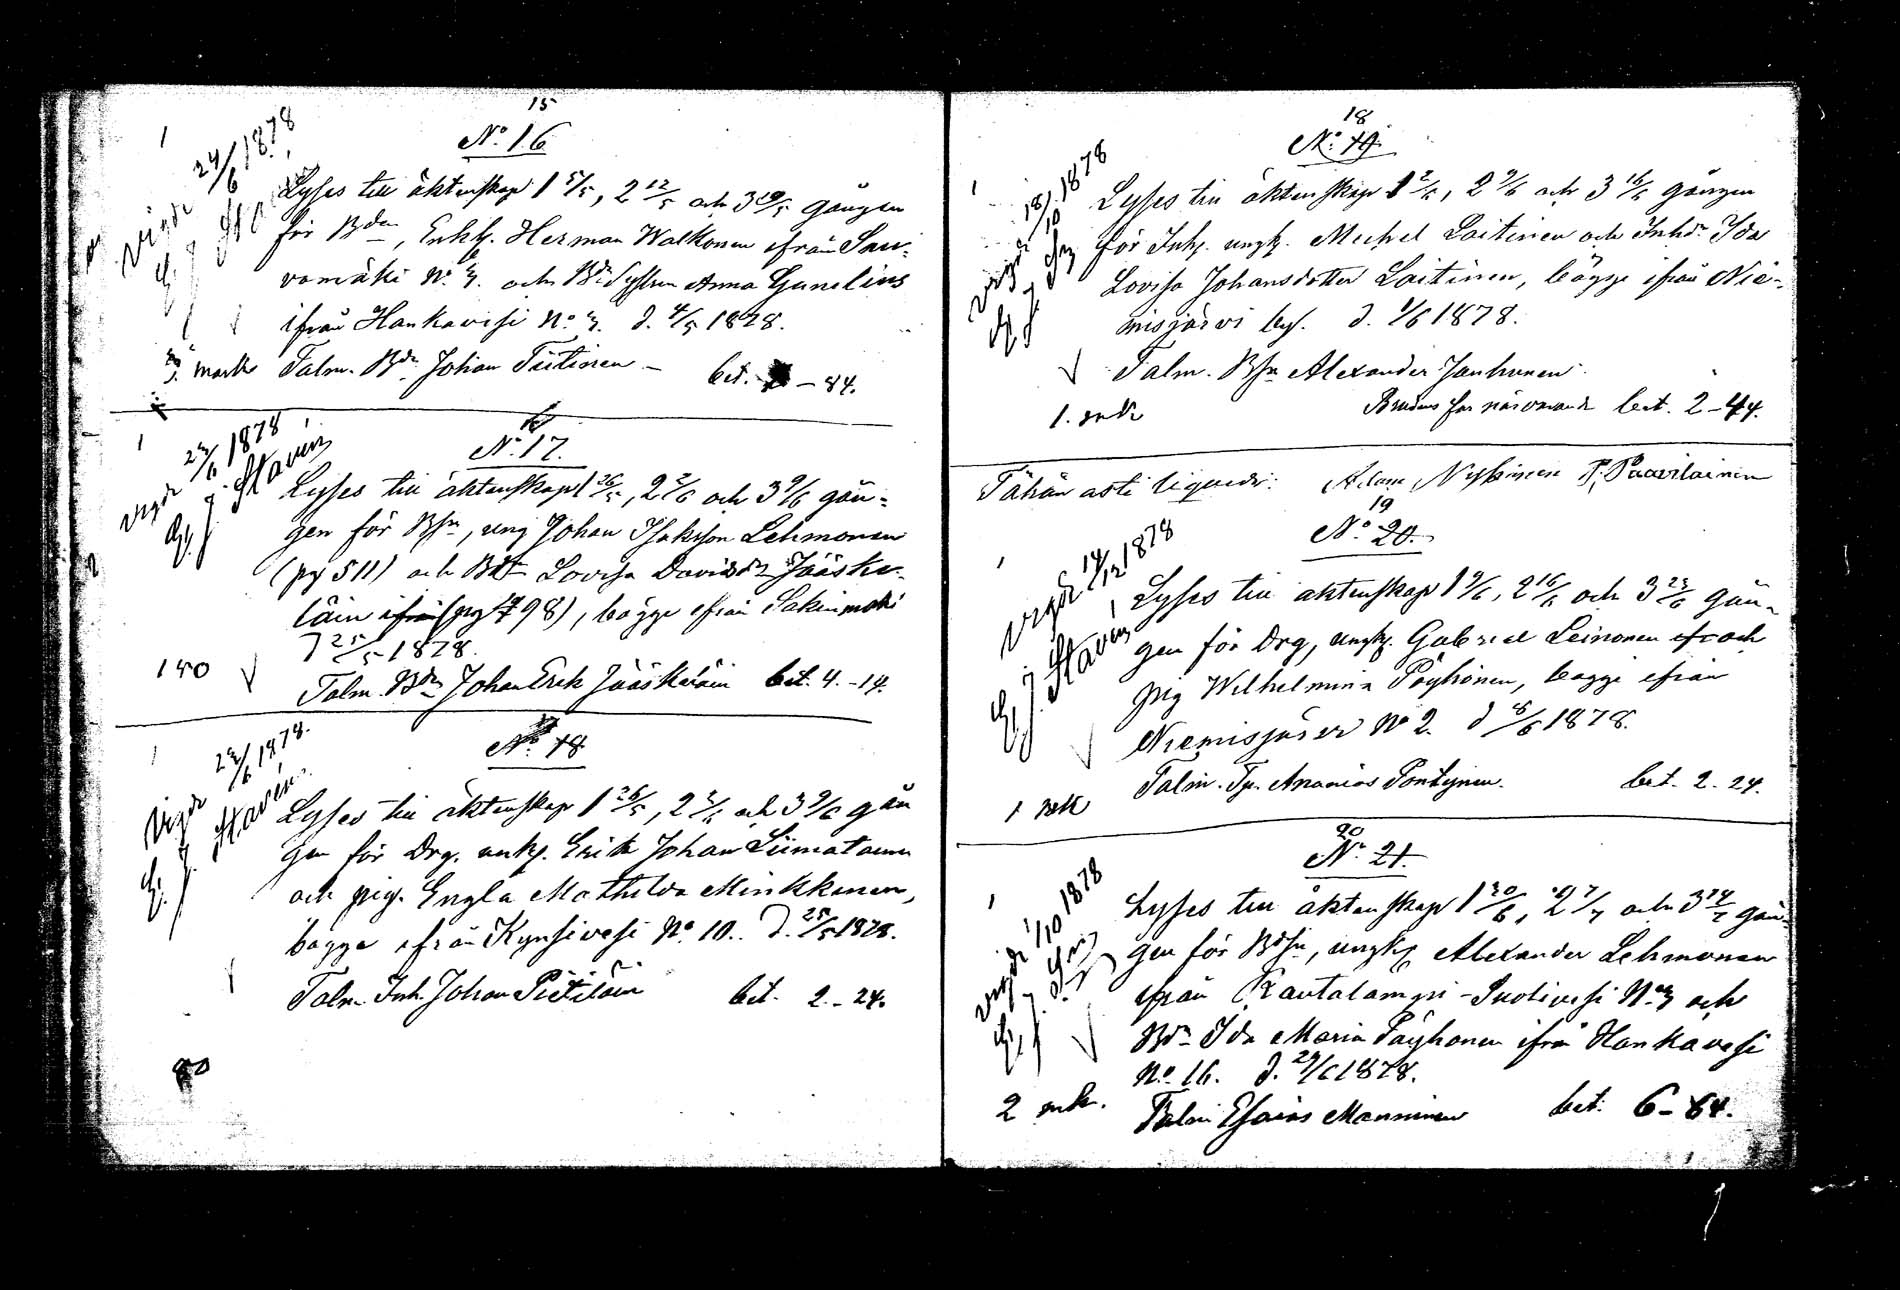 15
No 16
1
Vigde 24/6 1878
Lyses till äktenskap 1 5/5, 2 12/5 och 3 19/5 gången
för Bden, Enkl. Herman Walkonen ifrån Sau-
vomäki No 3. och Bde Systern Anna Gunelius
ifrån Hankavesi No 3. d. 4/5 1878.
mark Talm. Bdn Johan Tiitinen — bet. — 84.
1
Vigde 23/6 1878
E. J. Stavén
No 17.
Lyses till äktenskap 1 26/5, 2 2/6 och 3 9/6 gån-
gen för Bsn, ung Johan Isaksson Lehmonen
(pg 511) och Bdr Lovisa Davidsdr Jääske-
läin ifrån (pg 498), bägge ifrån Sakinmäki
d 25/5 1878.
150
Talm. Bdn Johan Erik Jääskeläin bet. 4.-14.
1
Vigde 23/6 1878.
E. J. Stavén
No 18
Lyses till äktenskap 1 26/5, 2 2/6 och 3 9/6 gån
gen för Drg. unkl. Erik Johan Liimatainen
och pig. Engla Mathilda Minkkinen,
bägge ifrån Kynsivesi No 10.. d. 25/5 1878.
Talm. Inh. Johan Pietiläin bet. 2.-24.
80
18
No 19
1
Vigde 18/10 1878
Lyses till äktenskap 1 2/6, 2 9/6 och 3 16/6 gången
för Inh. ungk. Michel Laitinen och Inhdr Ida
Lovisa Johansdotter Laitinen, bägge ifrån Nie-
misjärvi by. d. 1/6 1878.
Talm. Bsn Alexander Janhunen
1. mk
Brudens far närvarande bet. 2-44.
Tähän asti liqvider: Adam Nyyssinen P. Paavilainen
19
No 20.
1
Vigde 14/12 1878
E. J. Stavén
Lyses till äktenskap 1 9/6, 2 16/6 och 3 23/6 gån-
gen för Drg, ungk. Gabriel Leinonen och
pig Wilhelmina Pöyhönen, bägge ifrån
Niemisjärvi No 2. d 8/6 1878.
1 mk
Talm. Tp. Ananias Pöntynen. bet. 2. 24.
20
No 21.
1
Vigde 1/10 1878
Lyses till äktenskap 1 30/6, 2 7/7 och 3 14/7 gån-
gen för Bdsn, ungk Alexander Lehmonen
ifrån Rautalampi - No 3 och
Bdr Ida Maria Pöyhönen ifrån Hankavesi
No 16. d. 29/6 1878.
2 mk.
Talm Esaias Manninen bet. 6-64.